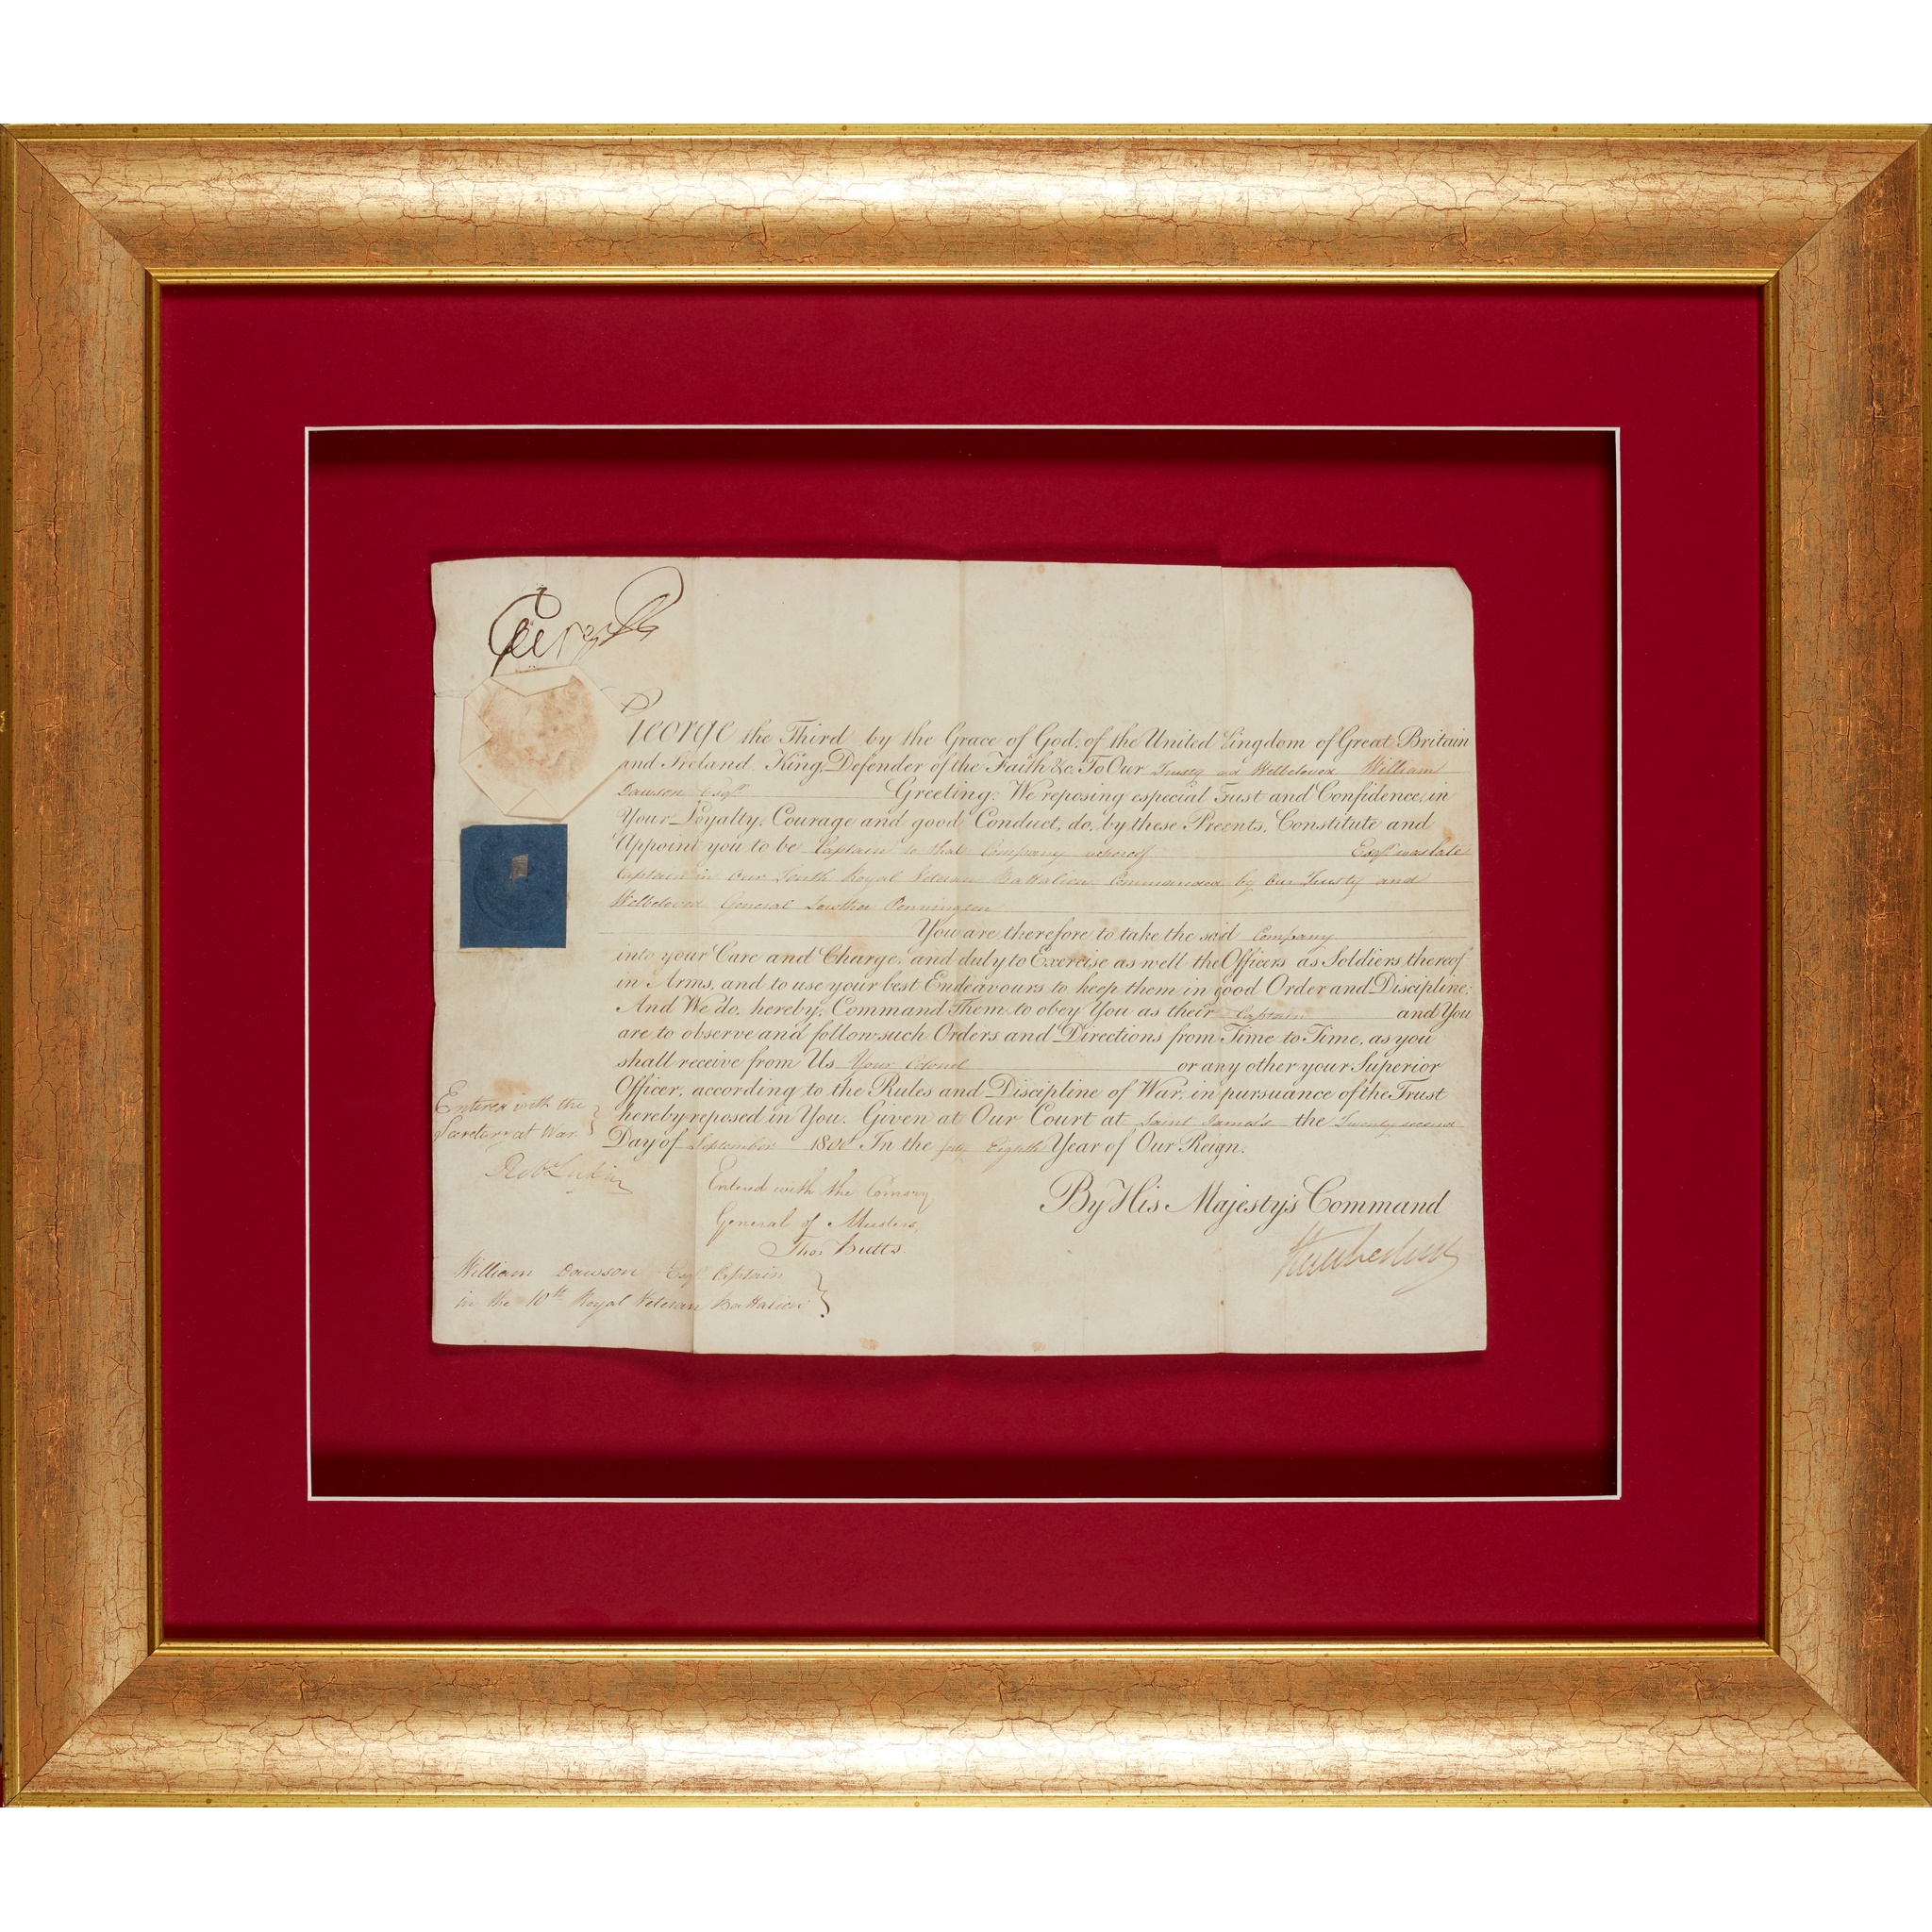 George R
George the Third by the Grace of God, of the United Kingdom of Great Britain
and Ireland King, Defender of the Faith &c. To Our Trusty and Welbeloved William
Dawson Esqr. Greeting: We reposing especial Trust and Confidence, in
Your Loyalty, Courage and good Conduct, do, by these Presents, Constitute and
Appoint you to be Captain to that Company whereof Esqr. was late
Captain in Our Tenth Royal Veteran Battalion Commanded by Our Trusty and
Welbeloved General Lowther Pennington
You are therefore to take the said Company
into your Care and Charge, and duly to Exercise as well the Officers as Soldiers thereof
in Arms, and to use your best Endeavours to keep them in good Order and Discipline;
And We do, hereby, Command Them to obey You as their Captain and You
are to observe and follow such Orders and Directions from Time to Time, as you
shall receive from Us Your Colonel or any other your Superior
Officer, according to the Rules and Discipline of War, in pursuance of the Trust
hereby reposed in You. Given at Our Court at Saint James's the Twenty second
Day of September 1808 In the forty Eighth Year of Our Reign.
By His Majesty's Command
Entered with the
Secretary at War.
Rob Lukin
Entered with the Comsry
General of Musters,
Thos. Butts.
William Dawson Esqr. Captain
in the 10th Royal Veteran Battalion